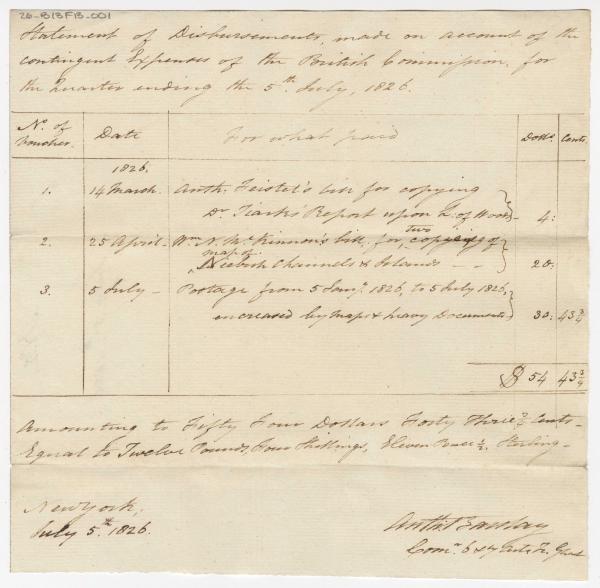 26-B13F13-001
Statement of Disbursements, made on account of the
contingent Expenses of the British Commission, for
the Quarter ending the 5th July, 1826.
No. of Voucher. Date For what paid Dolls. Cents.
1826.
1. 14 March. Anth. Feistel's bill for copying
Dr Tiarks' Report upon L. of Woods 4:
2. 25 April Wm N. McKinnon's bill for two copies of
map of Neebish Channels & Islands 20:
3. 5 July Postage from 5 Jany. 1826, to 5 July 1826,
increased by maps & heavy Documents 30: 43 3/4
$ 54 43 3/4
Amounting to Fifty Four Dollars Forty Three 3/4 Cents
Equal to Twelve Pounds, Four Shillings, Eleven Pence 1/2 Sterling
New York,
July 5th 1826.
Anth. Barclay
Comr. 6 & 7 Arts. Tr. Ghent